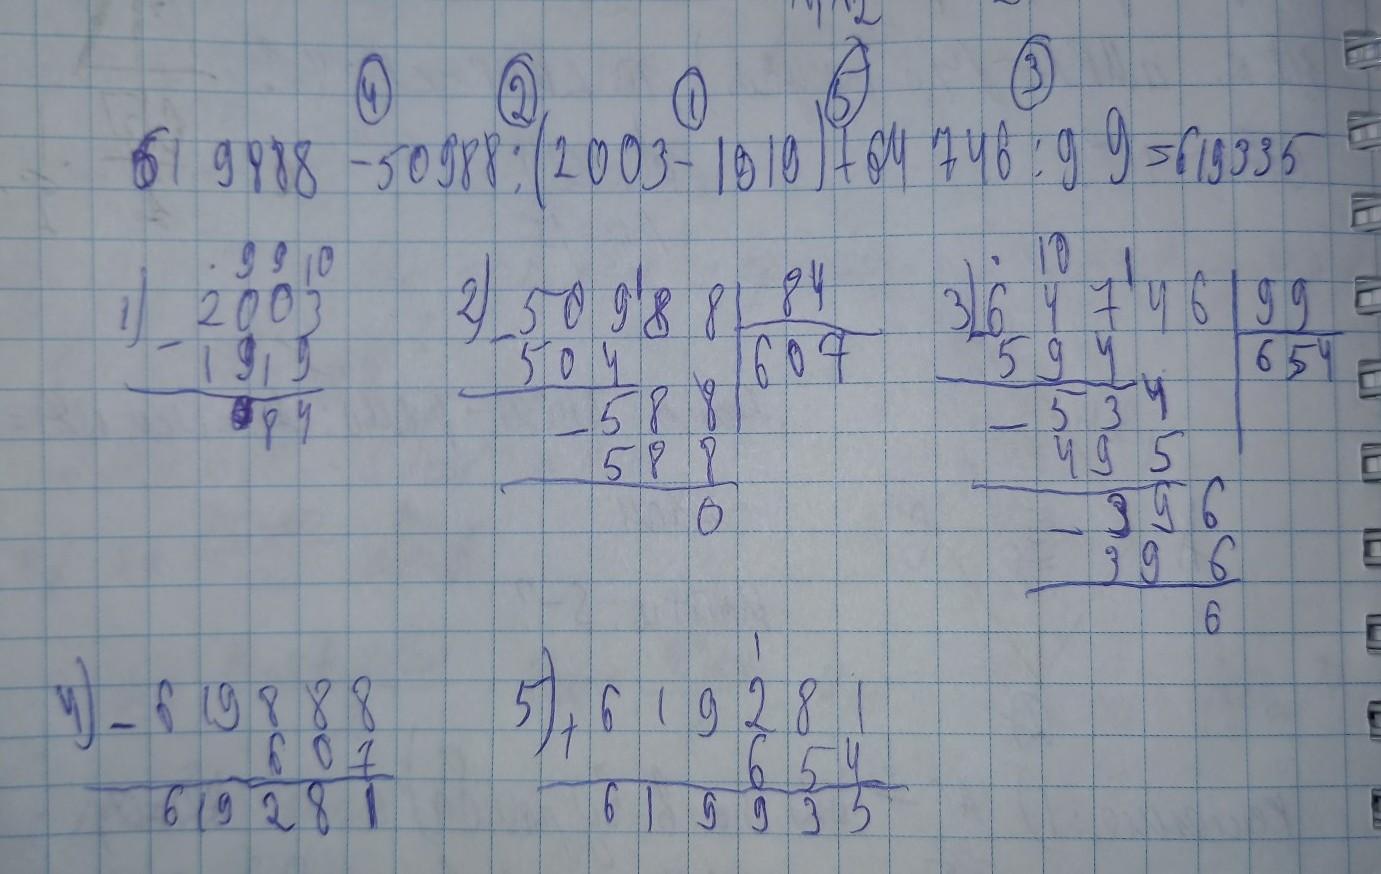 ④ ② ① ⑤ ③
619888 - 50988 : (2003 - 1919) + 64746 : 99 = 619335
. 9 9 10
1) - 2003
1919
84
2) - 50988 | 84
504 | 607
- 588
588
0
. 10 1
3) - 64746 | 99
594 | 654
- 534
495
- 396
396
6
4) - 619888
607
619281
1
5) + 619281
654
619935